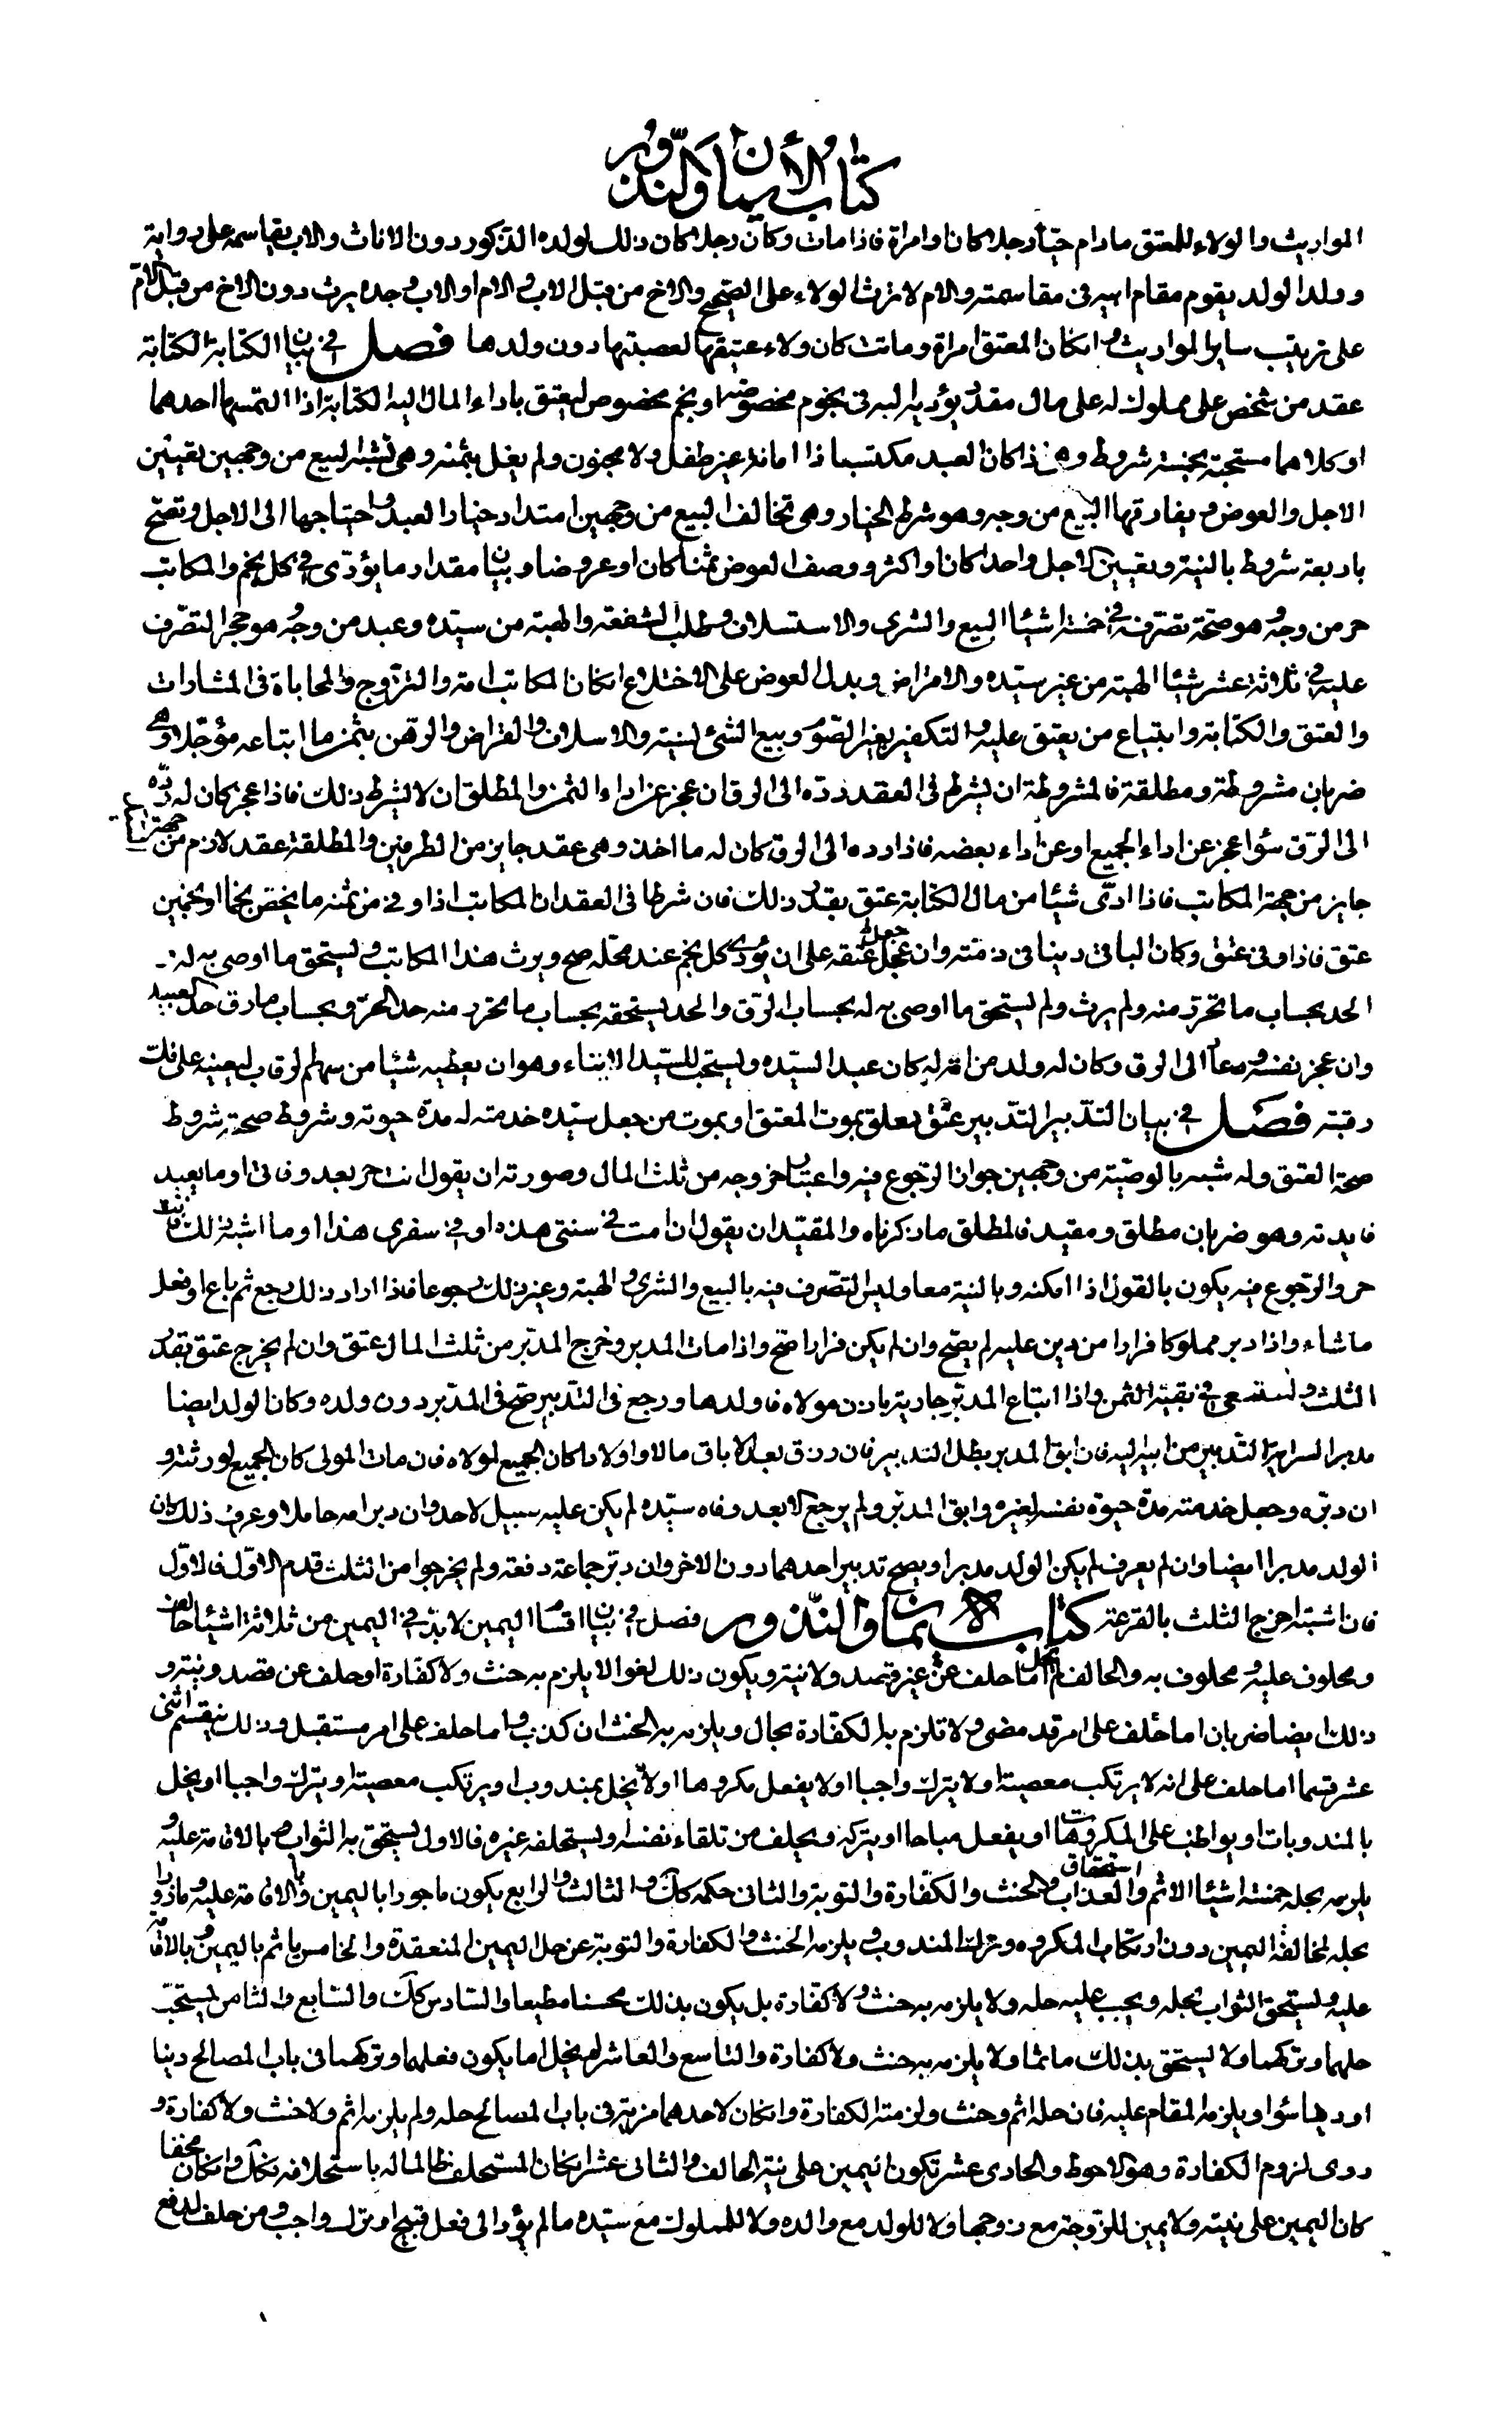 كتاب الأيمان والنذور
المواريث والولاء للمعتق مادام حيّا رجلا كان او امراة فاذا مات وكان رجلا كان ذلك لولده الذكور دون الاناث والاب يقاسمه على رواية
وولد الولد يقوم مقام ابيه فى مقاسمته والام لا ترث الولاء على الصحيح والاخ من قبل الاب والام او الاب وجده يرث دون الاخ من قبل الامّ
على ترتيب ساير المواريث وان كان المعتق امراة وماتت كان ولاء عتيقها لعصبتها دون ولدها فصل فى بيان الكتابة الكتابة
عقد من شخص على مملوك له على مال مقدر يؤديه اليه فى نجوم مخصوصة او نجم مخصوص ليعتق باداء المال اليه الكتابة اذا التمسها احدهما
او كلاهما مستحبة بخمسة شروط وهى اذا كان العبد مكتسبا ذا امانة غير طفل ولا مجنون ولم يغل بثمنه وهى تشبه البيع من وجهين تعيين
الاجل والعوض ويفارقها البيع من وجه وهو شرط الخيار وهى تخالف البيع من وجهين امتداد خيار العبد واحتياجها الى الاجل وتصحّ
باربعة شروط بالنية وتعيين الاجل واحدا كان او اكثر ووصف العوض ثمنا كان او عروضا وبيان مقدار ما يؤدّى فى كل نجم والمكاتب
حر من وجه وهو صحة تصرفه فى خمسة اشياء البيع والشرى والاستسلاف وطلب الشفعة والهبة من سيّده وعبد من وجه وهو حجر التصّرف
عليه فى ثلاثة عشر شيئا الهبة من غير سيّده والاقراض وبدل العوض على الاختلاع ان كان المكاتب امة والتزوج والمحاباة فى المشارات
والعتق والكتابة وابتياع من يعتق عليه والتكفير بغير الصّوم وبيع الشئ نسيئة والاسلاف والقراض والرهن بثمن ما ابتاعه مؤجّلا وهى
ضربان مشروطة ومطلقة فالمشروطة ان يشرط فى العقد ردّه الى الرق ان عجز عن اداء الثمن والمطلق ان لا يشرط ذلك فاذا عجز كان له ردّه
الى الرّق سواء عجز عن اداء الجميع او عن اداء بعضه فاذا رده الى الرق كان له ما اخذ وهى عقد جايز من الطرفين والمطلقة عقد لازم من جهة السيد
جايز من جهة المكاتب فاذا ادّى شيئا من مال الكتابة عتق بقدر ذلك فان شرط فى العقد ان المكاتب اذا وفى من ثمنه ما يخص نجما او نجمين
عتق فاذا وفى عتق وكان الباقى دينا فى ذمّته وان جعل عتقه على ان يؤدى كل نجم عند محلّه صح ويرث هذا المكاتب ويستحق ما اوصى به له
الحد بحساب ما تحرّر منه ولم يرث ولم يستحق ما اوصى به له بحساب الرّق والحد يستحقه بحساب ما تحرر منه حد الحرّ وبحساب ما رق حد العبيد
وان عجز نفسه رجعا الى الرق وكان له ولد من امة له كان عبدا لسيّده ويستحب للسيّد الايتاء وهو ان يعطيه شيئا من سهم الرقاب ليعينه على فك
رقبته فصل فى بيان التدبير التدبير عتق يعلق بموت المعتق او بموت من جعل سيّده خدمته له مدّة حيوته وشروط صحته شروط
صحة العتق وله شبه بالوصيّة من وجهين جواز الرجوع فيه واعتبار خروجه من ثلث المال وصورته ان يقول انت حر بعد وفاتى او ما يفيد
فايدته وهو ضربان مطلق ومقيد فالمطلق ما ذكرناه والمقيّد ان يقول ان مت فى سنتى هذه او فى سفرى هذا او ما اشبه ذلك فانت
حر والرّجوع فيه يكون بالقول اذا امكنه وبالنية معا وليس التصّرف فيه بالبيع والشرى والهبة وغير ذلك رجوعا فاذا اراد ذلك رجع ثم باع او فعل
ما شاء واذا دبر مملوكا فرارا من دين عليه لم يصّح وان لم يكن فرارا صحّ واذا مات المدبر وخرج المدبّر من ثلث المال عتق وان لم يخرج عتق بقدر
الثلث واستسعى فى بقية الثمن واذا ابتاع المدبّر جارية باذن مولاه فاولدها ورجع فى التدبير صحّ فى المدّبر دون ولده وكان الولد ايضا
مدبرا لسراية التدبير من ابيه اليه فان ابق المدبر بطل التدبير فان رزق بعد الاباق مالا واولادا كان الجميع لمولاه فان مات المولى كان الجميع لورثته و
ان دبّره وجعل خدمته مدّة حيوة نفسه لغيره وابق المدبّر ولم يرجع الا بعد وفاة سيّده لم يكن عليه سبيل لاحد وان دبر امه حاملا وعرف ذلك كان
الولد مدبرا ايضا وان لم يعرف لم يكن الولد مدبرا ويصح تدبير احدهما دون الاخر وان دبّر جماعة دفعة ولم يخرجوا من الثلث قدم الاوّل فالاوّل
فان اشتبه اخرج الثلث بالقرعة كتاب الايمان والنّذور فصل فى بيان اقسام اليمين لا بدّ فى اليمين من ثلاثة اشياء حالف
ومحلوف عليه ومحلوف به والحالف لم يخل اما حلف عن غير قصد ولا نية ويكون ذلك لغوا لا يلزم به حنث ولا كفّارة او حلف عن قصد ونية و
ذلك ايضا ضربان اما حلف على امر قد مضى ولا تلزم به الكفّارة بحال ويلزمه به الحنث ان كذب واما حلف على امر مستقبل وذلك ينقسم اثنى
عشر قسما اما حلف على انه لا يرتكب معصية او لا يترك واجبا او لا يفعل مكروها او لا يخل بمندوب او يرتكب معصية او يترك واجبا او يخل
بالمندوبات او يواظب على المكروهات او يفعل مباحا او يتركه ويحلف من تلقاء نفسه او يستحلفه غيره فالاول يستحق به الثواب وبالاقامة عليه و
يلزمه بحله خمسة اشياء الاثم واستحقاق العذاب والحنث والكفّارة والتوبة والثانى حكمه كك والثالث والرابع يكون ماجورا باليمين وبالاقامة عليه وماذورا
بحله لمخالفة اليمين دون ارتكاب المكروه وترك المندوب ويلزمه الحنث والكفارة والتوبة عن حل اليمين المنعقدة والخامس ياثم باليمين وبالاقامة
عليه ويستحق الثواب بحله ويجب عليه حله ولا يلزمه به حنث ولا كفّارة بل يكون بذلك محسنا مطيعا والسّادس كك والسّابع والثامن يستحبّ
حلهما وتركهما ولا يستحق بذلك ماثما ولا يلزمه به حنث ولا كفارة والتاسع والعاشر لم يخل اما يكون فعلهما وتركهما فى باب المصالح دينا
او دنيا سواء ويلزمه المقام عليه فان حله اثم وحنث ولزمته الكفارة وان كان لاحدهما مزيّة فى باب المصالح حله ولم يلزمه اثم ولا حنث ولا كفارة و
روى لزوم الكفارة وهو الاحوط والحادى عشر تكون اليمين على نية الحالف والثانى عشر ان كان المستحلف ظالما له باستحلافه فكك وان كان محقا
كان اليمين على نيته ولا يمين للزّوجة مع زوجها ولا للولد مع والده ولا للمملوك مع سيّده ما لم يؤد الى فعل قبيح او ترك واجب ومن حلف لدفع